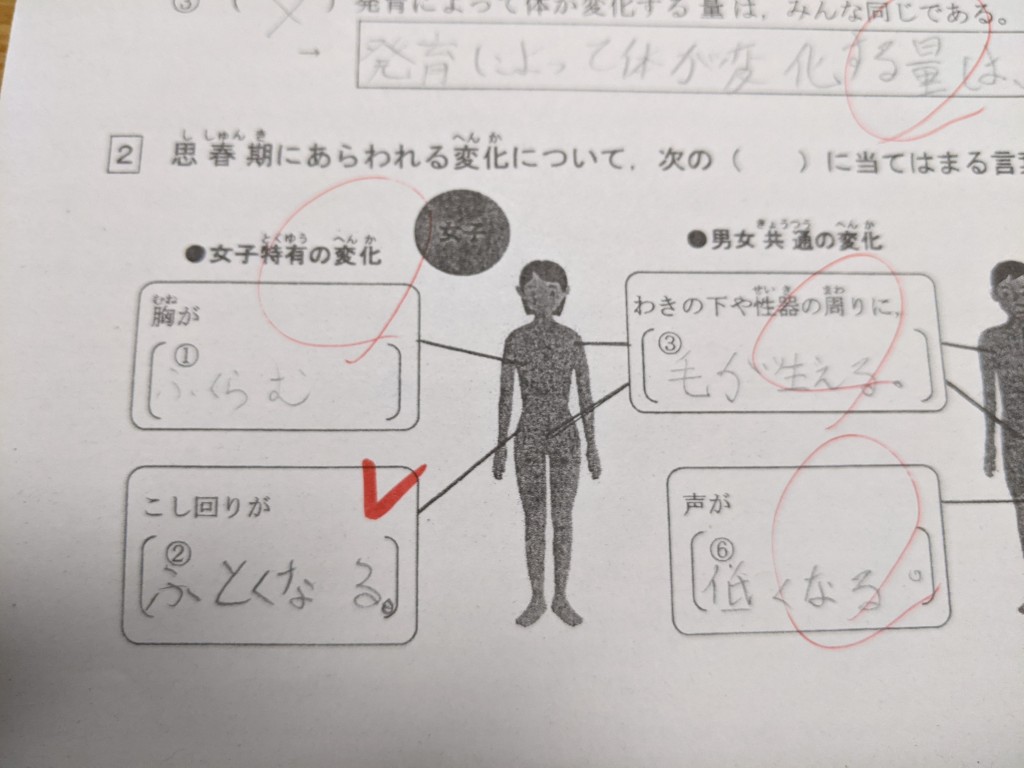 ③ ( × ) 発育によって体が変化する量は，みんな同じである。
→ 発育によって体が変化する量は、
2 思春期にあらわれる変化について，次の（　　）に当てはまる言葉
女子
●女子特有の変化
胸が
① ふくらむ
こし回りが
② ふとくなる。
●男女共通の変化
わきの下や性器の周りに，
③ 毛が生える。
声が
⑥ 低くなる。